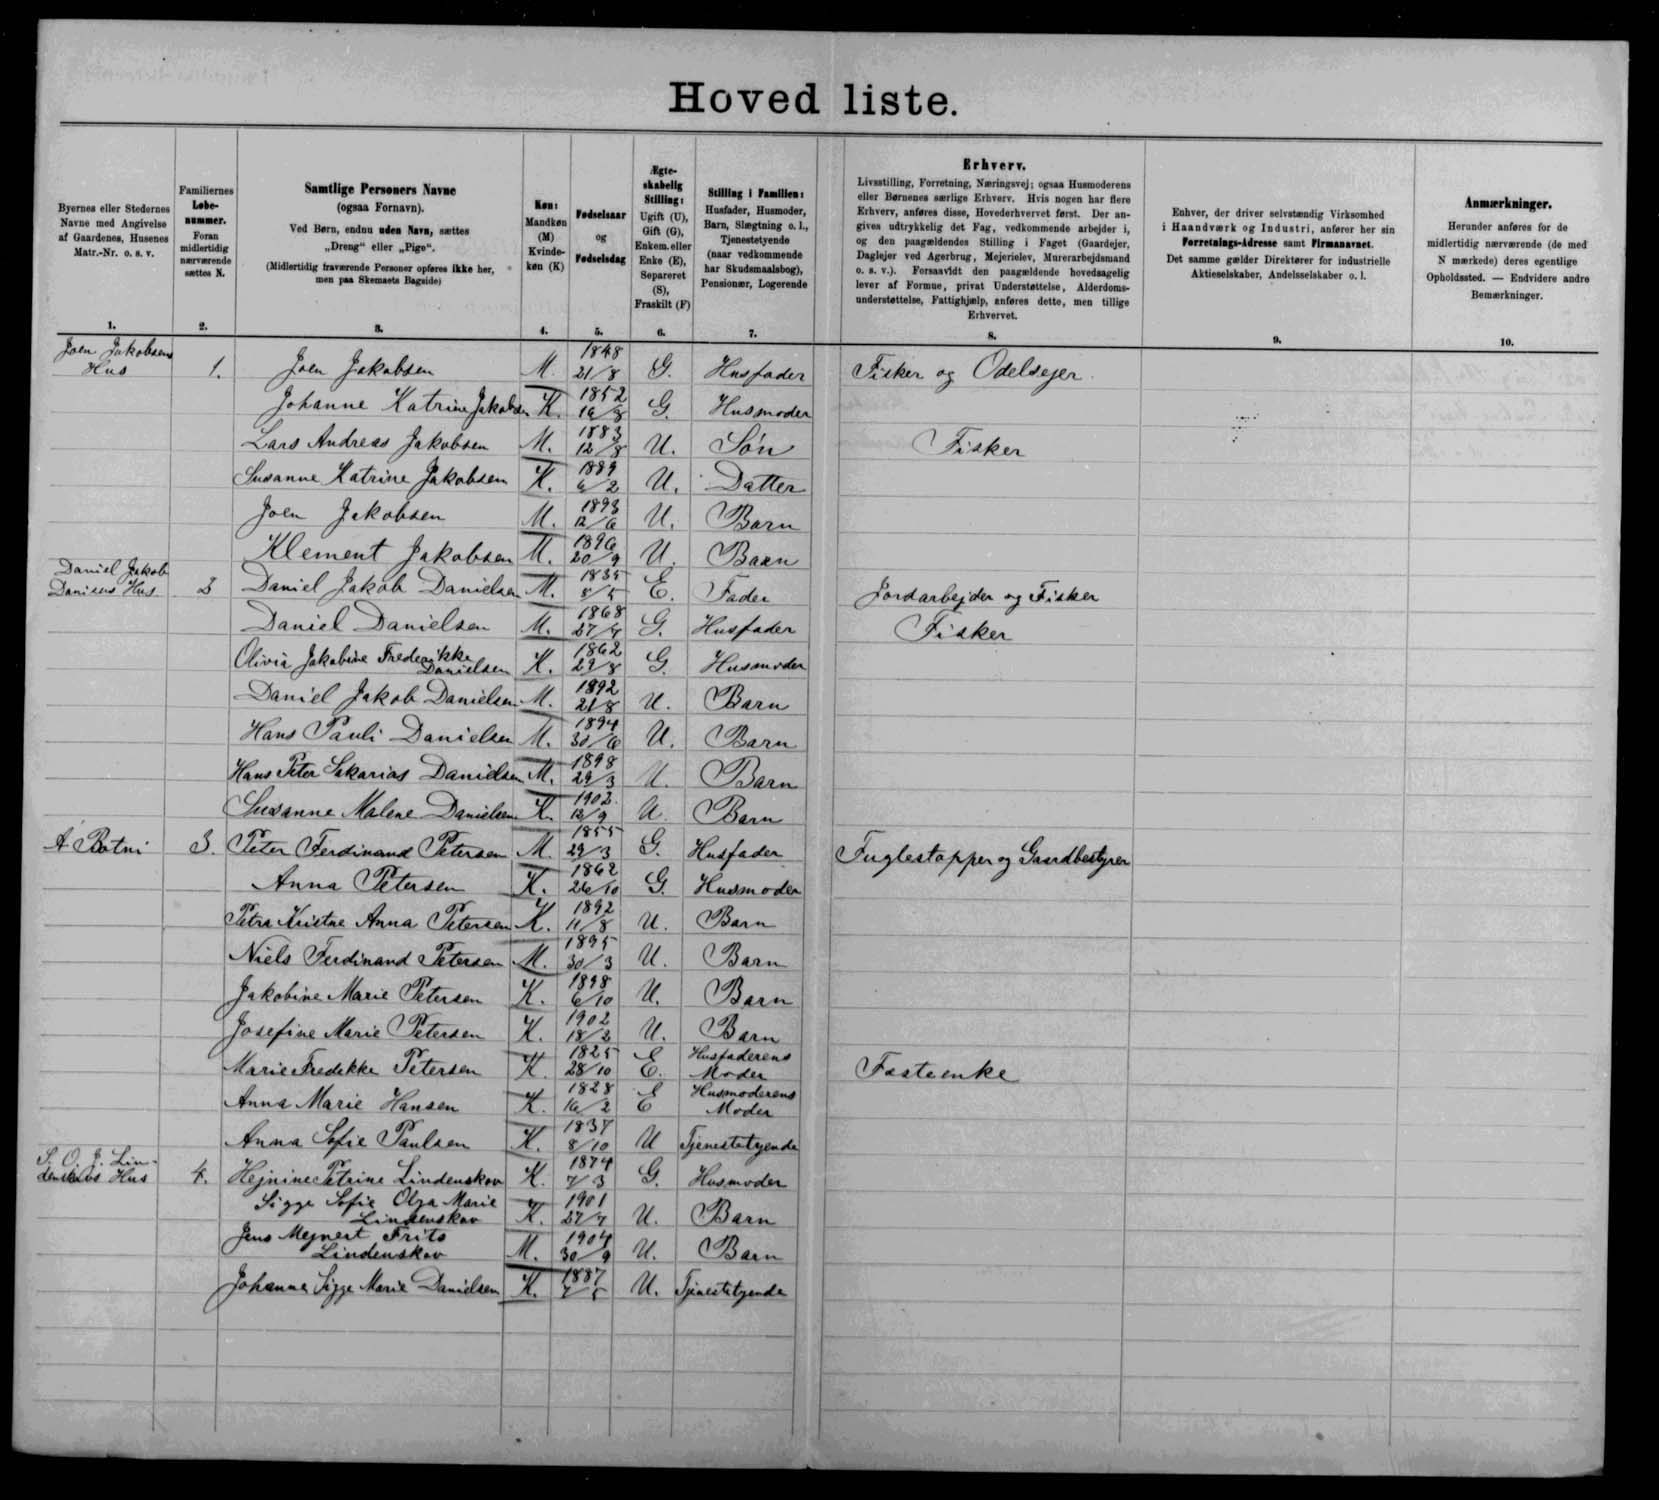 Hoved liste.
Byernes eller Stedernes
Navne med Angivelse
af Gaardenes, Husenes
Matr.-Nr. o. s. v.
1.
Familiernes
Løbe-
nummer.
Foran
midlertidig
nærværende
sættes N.
2.
Samtlige Personers Navne
(ogsaa Fornavn).
Ved Børn, endnu uden Navn, sættes
„Dreng" eller „Pige".
(Midlertidig fraværende Personer opføres ikke her,
men paa Skemaets Bagside)
3.
Køn:
Mandkøn
(M)
Kvinde-
køn (K)
4.
Fødselsaar
og
Fødselsdag
5.
Ægte-
skabelig
Stilling:
Ugift (U),
Gift (G),
Enkem. eller
Enke (E),
Separeret
(S),
Fraskilt (F)
6.
Stilling i Familien:
Husfader, Husmoder,
Barn, Slægtning o. l.,
Tjenestetyende
(naar vedkommende
har Skudsmaalsbog),
Pensionær, Logerende
7.
Erhverv.
Livsstilling, Forretning, Næringsvej; ogsaa Husmoderens
eller Børnenes særlige Erhverv. Hvis nogen har flere
Erhverv, anføres disse, Hovederhvervet først. Der an-
gives udtrykkelig det Fag, vedkommende arbejder i,
og den paagældendes Stilling i Faget (Gaardejer,
Daglejer ved Agerbrug, Mejerielev, Murerarbejdsmand
o. s. v.). Forsaavidt den paagældende hovedsagelig
lever af Formue, privat Understøttelse, Alderdoms-
understøttelse, Fattighjælp, anføres dette, men tillige
Erhvervet.
8.
Enhver, der driver selvstændig Virksomhed
i Haandværk og Industri, anfører her sin
Forretnings-Adresse samt Firmanavnet.
Det samme gælder Direktører for industrielle
Aktieselskaber, Andelsselskaber o. l.
9.
Anmærkninger.
Herunder anføres for de
midlertidig nærværende (de med
N mærkede) deres egentlige
Opholdssted. — Endvidere andre
Bemærkninger.
10.
Joen Jakobsens
Hus 1. Joen Jakobsen M. 1848 21/8 G. Husfader Fisker og Odelsejer.
Johanne Katrine Jakobsen K. 1852 G. Husmoder
Lars Andreas Jakobsen M. 1883 12/8 U. Søn Fisker
Susanne Katrine Jakobsen K. 1889 6/2 U. Datter
Joen Jakobsen M. 1893 12/6 U. Barn
Klement Jakobsen M. 1896 20/9 U. Barn
Daniel Jakob
Hus 2 Daniel Jakob Danielsen M. 1835 8/5 E. Fader Jordarbejder og Fisker
Daniel Danielsen M. 1868 G. Husfader Fisker
Olivia Jakobine Frederikke
Danielsen K. 1862 29/8 G. Husmoder
Daniel Jakob Danielsen M. 1892 21/8 U. Barn
Hans Pauli Danielsen M. 1894 30/6 U. Barn
Hans Peter Sakarias Danielsen M. 1898 29/3 U. Barn
Susanne Malene Danielsen K. 1902. U. Barn
Á Botni 3. Peter Ferdinand Petersen M. 1855 29/3 G. Husfader Fuglestopper og Gaardbestyrer
Anna Petersen K. 1862 26/10 G. Husmoder
Petra Kristne Anna Petersen K. 1892 11/8 U. Barn
Niels Ferdinand Petersen M. 1895 30/3 U. Barn
Jakobine Marie Petersen K. 1898 6/10 U. Barn
Josefine Marie Petersen K. 1902 U. Barn
Marie Fredekke Petersen K. 1825 28/10 E. Husfaderens
Moder Fæsteenke
Anna Marie Hansen K. 1828 16/2 E Husmoderens
Moder
Anna Sofie Paulsen K. 1837 8/10 U Tjenestetyende
S. O. J. Lin-
denskovs Hus 4. Hejnine Petrine Lindenskov K. 1874 7/3 G. Husmoder
Sigge Sofie Olga Marie
Lindenskov K. 1901 27/7 U. Barn
Jens Mejnert Frits
Lindenskov M. 1904 30/9 U. Barn
Johanne Sigge Marie Danielsen K. 1887 7/5 U. Tjenestetyende